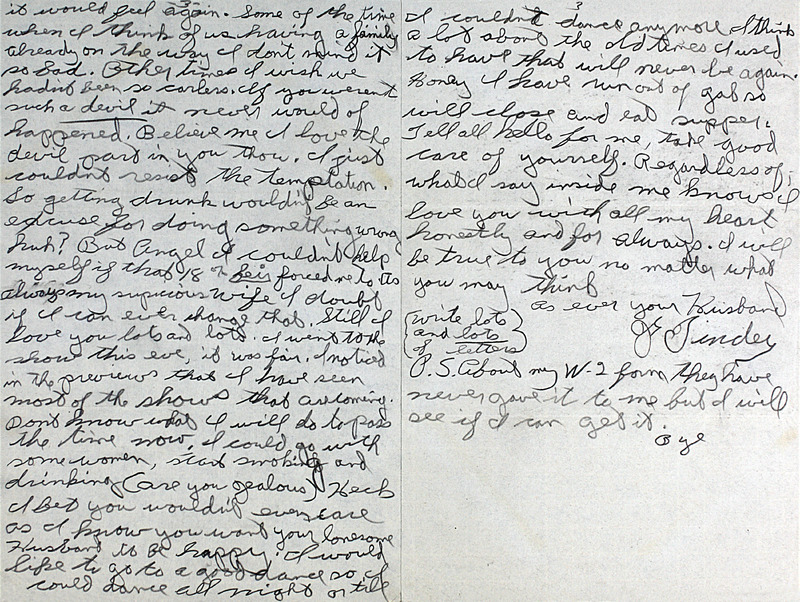 it would feel again. Some of the time
when I think of us having a family
already on the way I don't mind it
so bad. Other times I wish we
hadn't been so carless. If you weren't
such a devil it never would of
happened. Believe me I love the
devil part in you thow. I just
couldn't resist the temptation.
So getting drunk wouldn't be an
excuse for doing something wrong
huh? But Angel I couldn't help
myself if that 18 forced me to. Its
always my supicious wife I doubt
if I can ever change that. Still I
love you lots and lots. I went to the
show this eve, it was fair. I noticed
in the previews that I have seen
most of the shows that are coming.
Dont know what I will do to pass
the time now, I could go with
some women, start smoking and
drinking (are you jealous) Heck
I bet you wouldn't even care
as I know you want your lonesome
Husband to be happy. I would
like to go to a good dance so I
could dance all night or till
3
I couldn't dance anymore. I think
a lot about the old times I used
to have that will never be again.
Honey I have run out of gab so
will close and eat supper.
Tell all hello for me, take good
care of yourself. Regardless of
what I say inside me knows I
love you with all my heart
honestly and for always. I will
be true to you no matter what
you may think
as ever your Husband
(write lots
and lots
of letters)
P.S. About my W-2 form they have
never gave it to me but I will
see if I can get it.
Bye